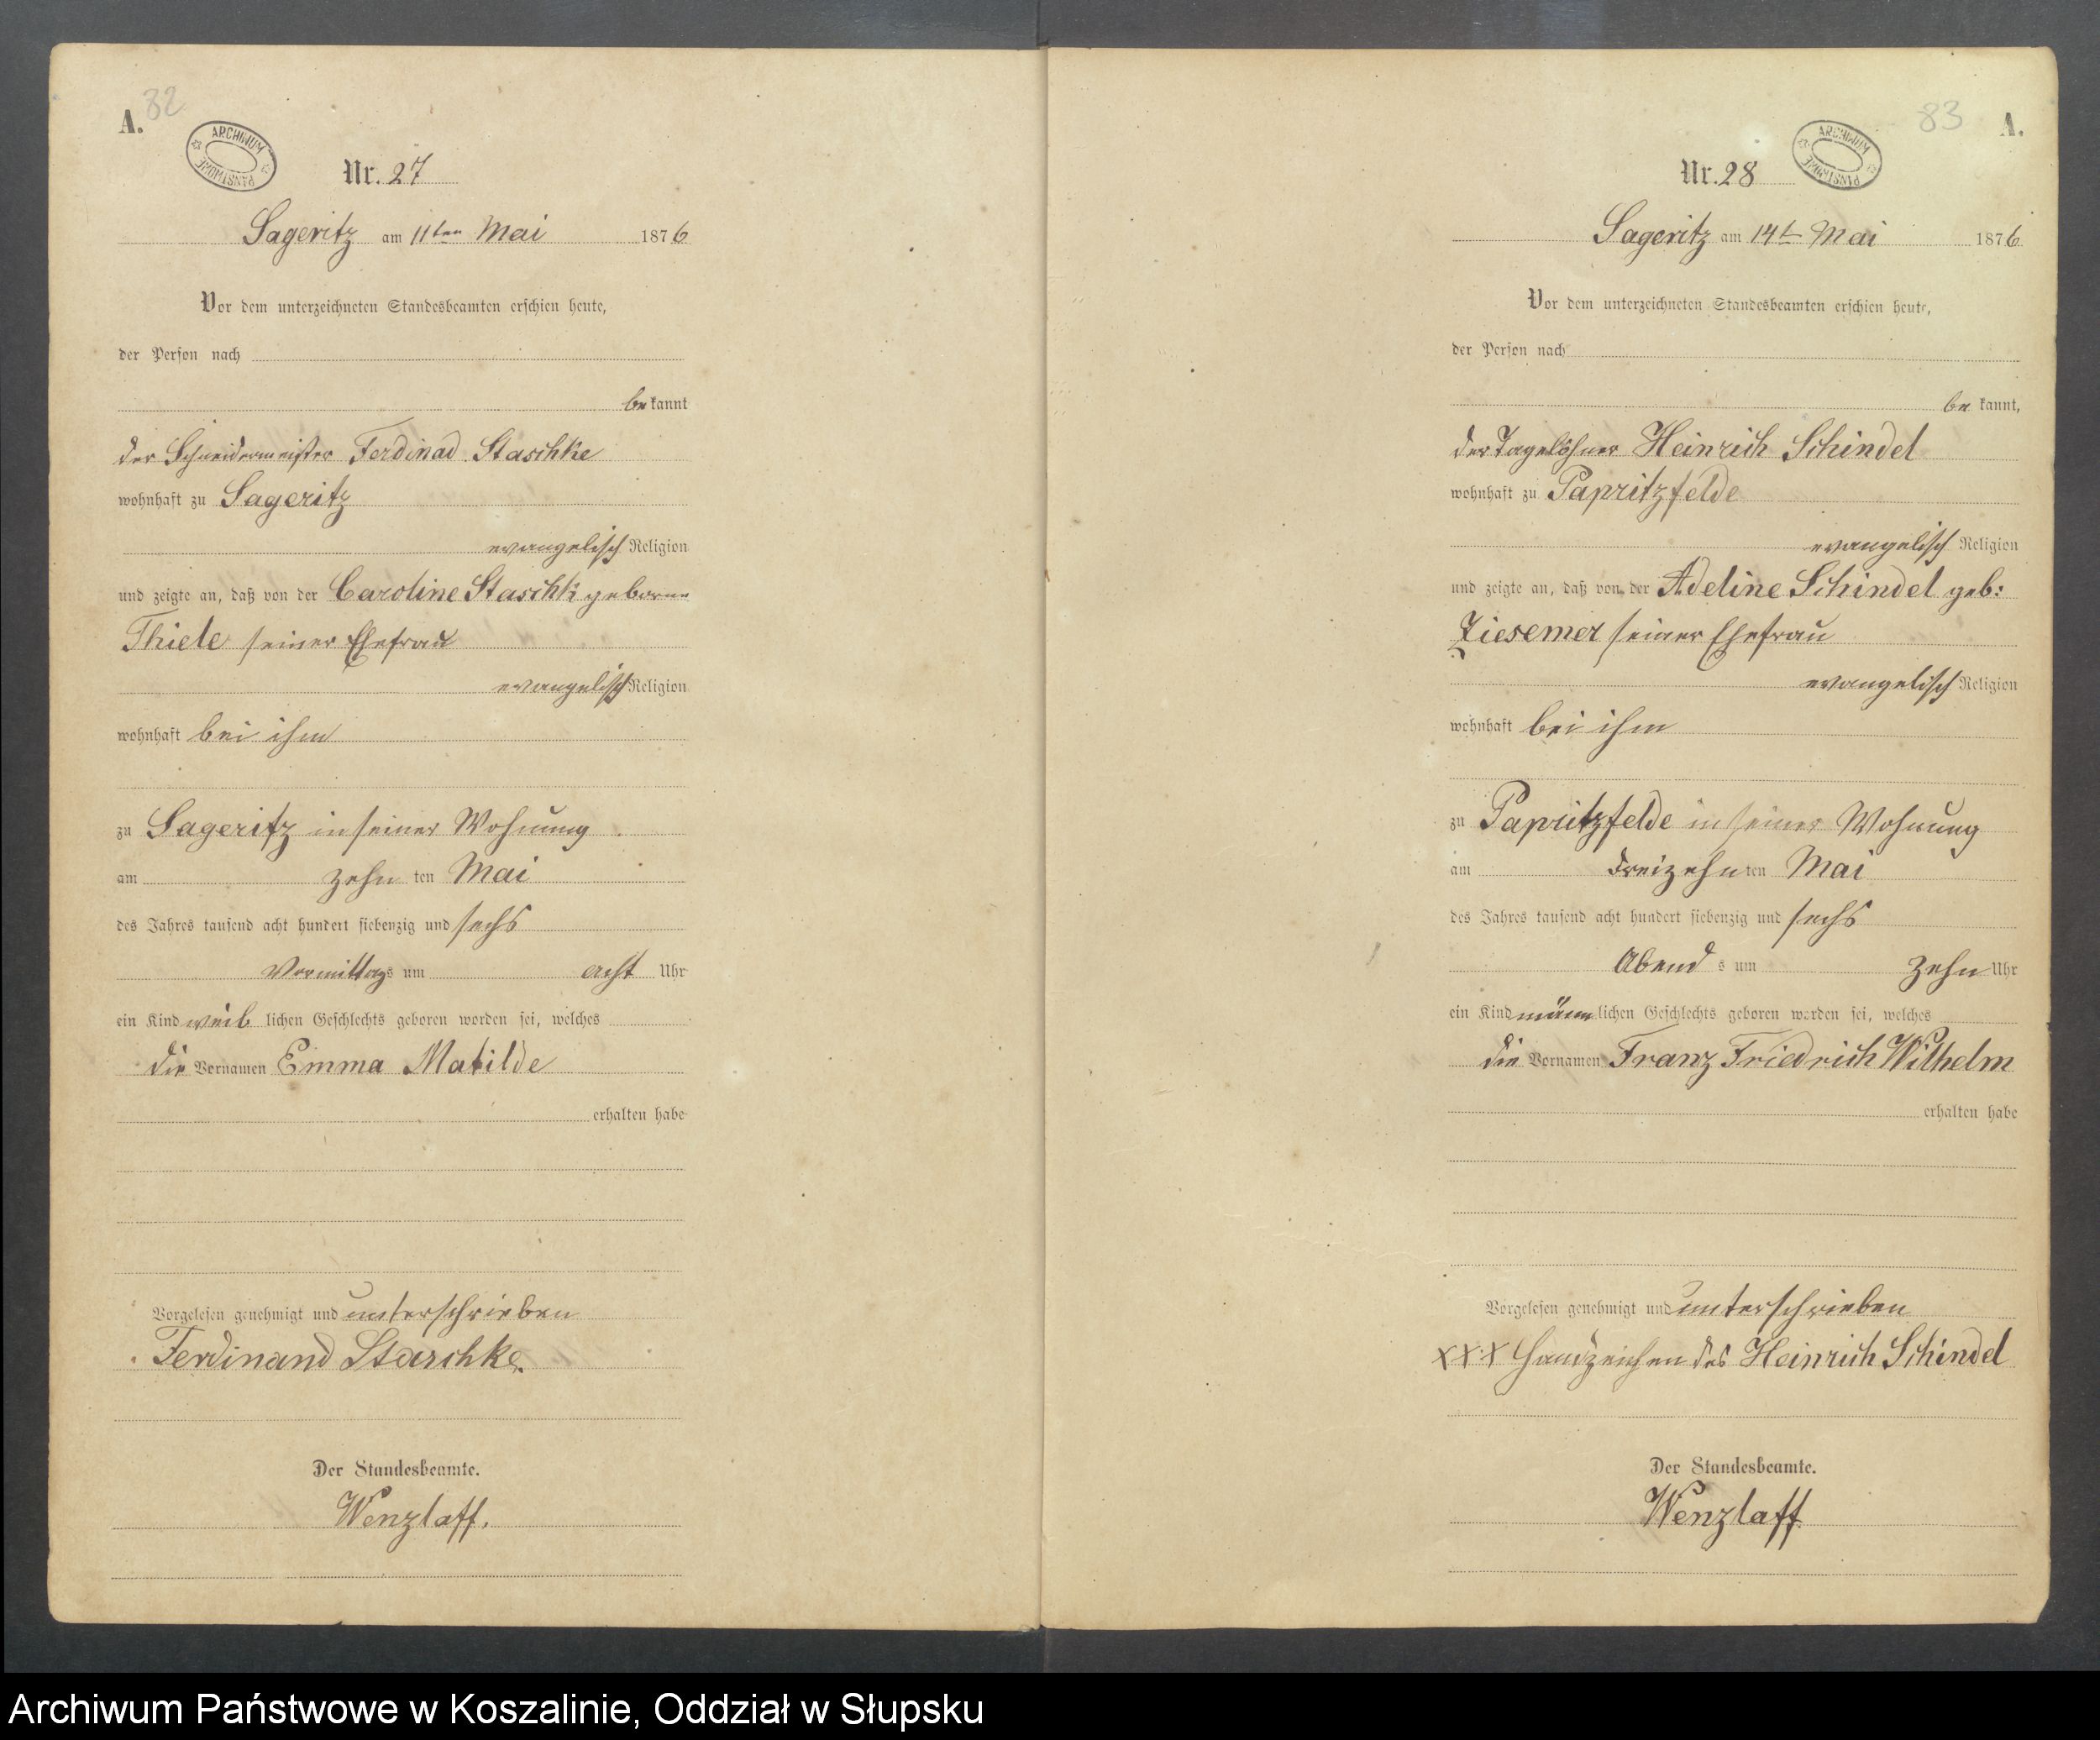 A. 82
ARCHIWUM PAŃSTWOWE
Nr. 27
Sageritz am 11ten Mai 1876
Vor dem unterzeichneten Standesbeamten erschien heute,
der Person nach
bekannt
der Schneidermeister Ferdinad Staschke
wohnhaft zu Sageritz
evangelisch Religion
und zeigte an, daß von der Caroline Staschk geborne
Thiele seiner Ehefrau
evangelisch Religion
wohnhaft bei ihm
zu Sageritz in seiner Wohnung
am zehn ten Mai
des Jahres tausend acht hundert siebenzig und sechs
Vormittags um acht Uhr
ein Kind weiblichen Geschlechts geboren worden sei, welches
die Vornamen Emma Matilde
erhalten habe
Vorgelesen genehmigt und unterschrieben
Ferdinand Staschke.
Der Standesbeamte.
Wenzlaff.
83 A.
ARCHIWUM PAŃSTWOWE
Nr. 28
Sageritz am 14t Mai 1876
Vor dem unterzeichneten Standesbeamten erschien heute,
der Person nach
bekannt,
der Tagelöhner Heinrich Schindel
wohnhaft zu Papritzfelde
evangelisch Religion
und zeigte an, daß von der Adeline Schindel geb:
Ziesemer seiner Ehefrau
evangelisch Religion
wohnhaft bei ihm
zu Papritzfelde in seiner Wohnung
am dreizehnten Mai
des Jahres tausend acht hundert siebenzig und sechs
Abends um zehn Uhr
ein Kind männlichen Geschlechts geboren worden sei, welches
die Vornamen Franz Friedrich Wilhelm
erhalten habe
Vorgelesen genehmigt und unterschrieben
XXX Handzeichen des Heinrich Schindel
Der Standesbeamte.
Wenzlaff
Archiwum Państwowe w Koszalinie, Oddział w Słupsku